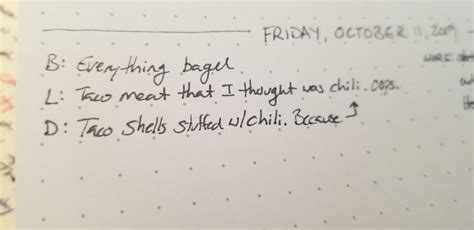 FRIDAY, OCTOBER 11, 2019
B: Everything bagel
L: Taco meat that I thought was chili. oops.
D: Taco shells stuffed w/chili. Because ↑